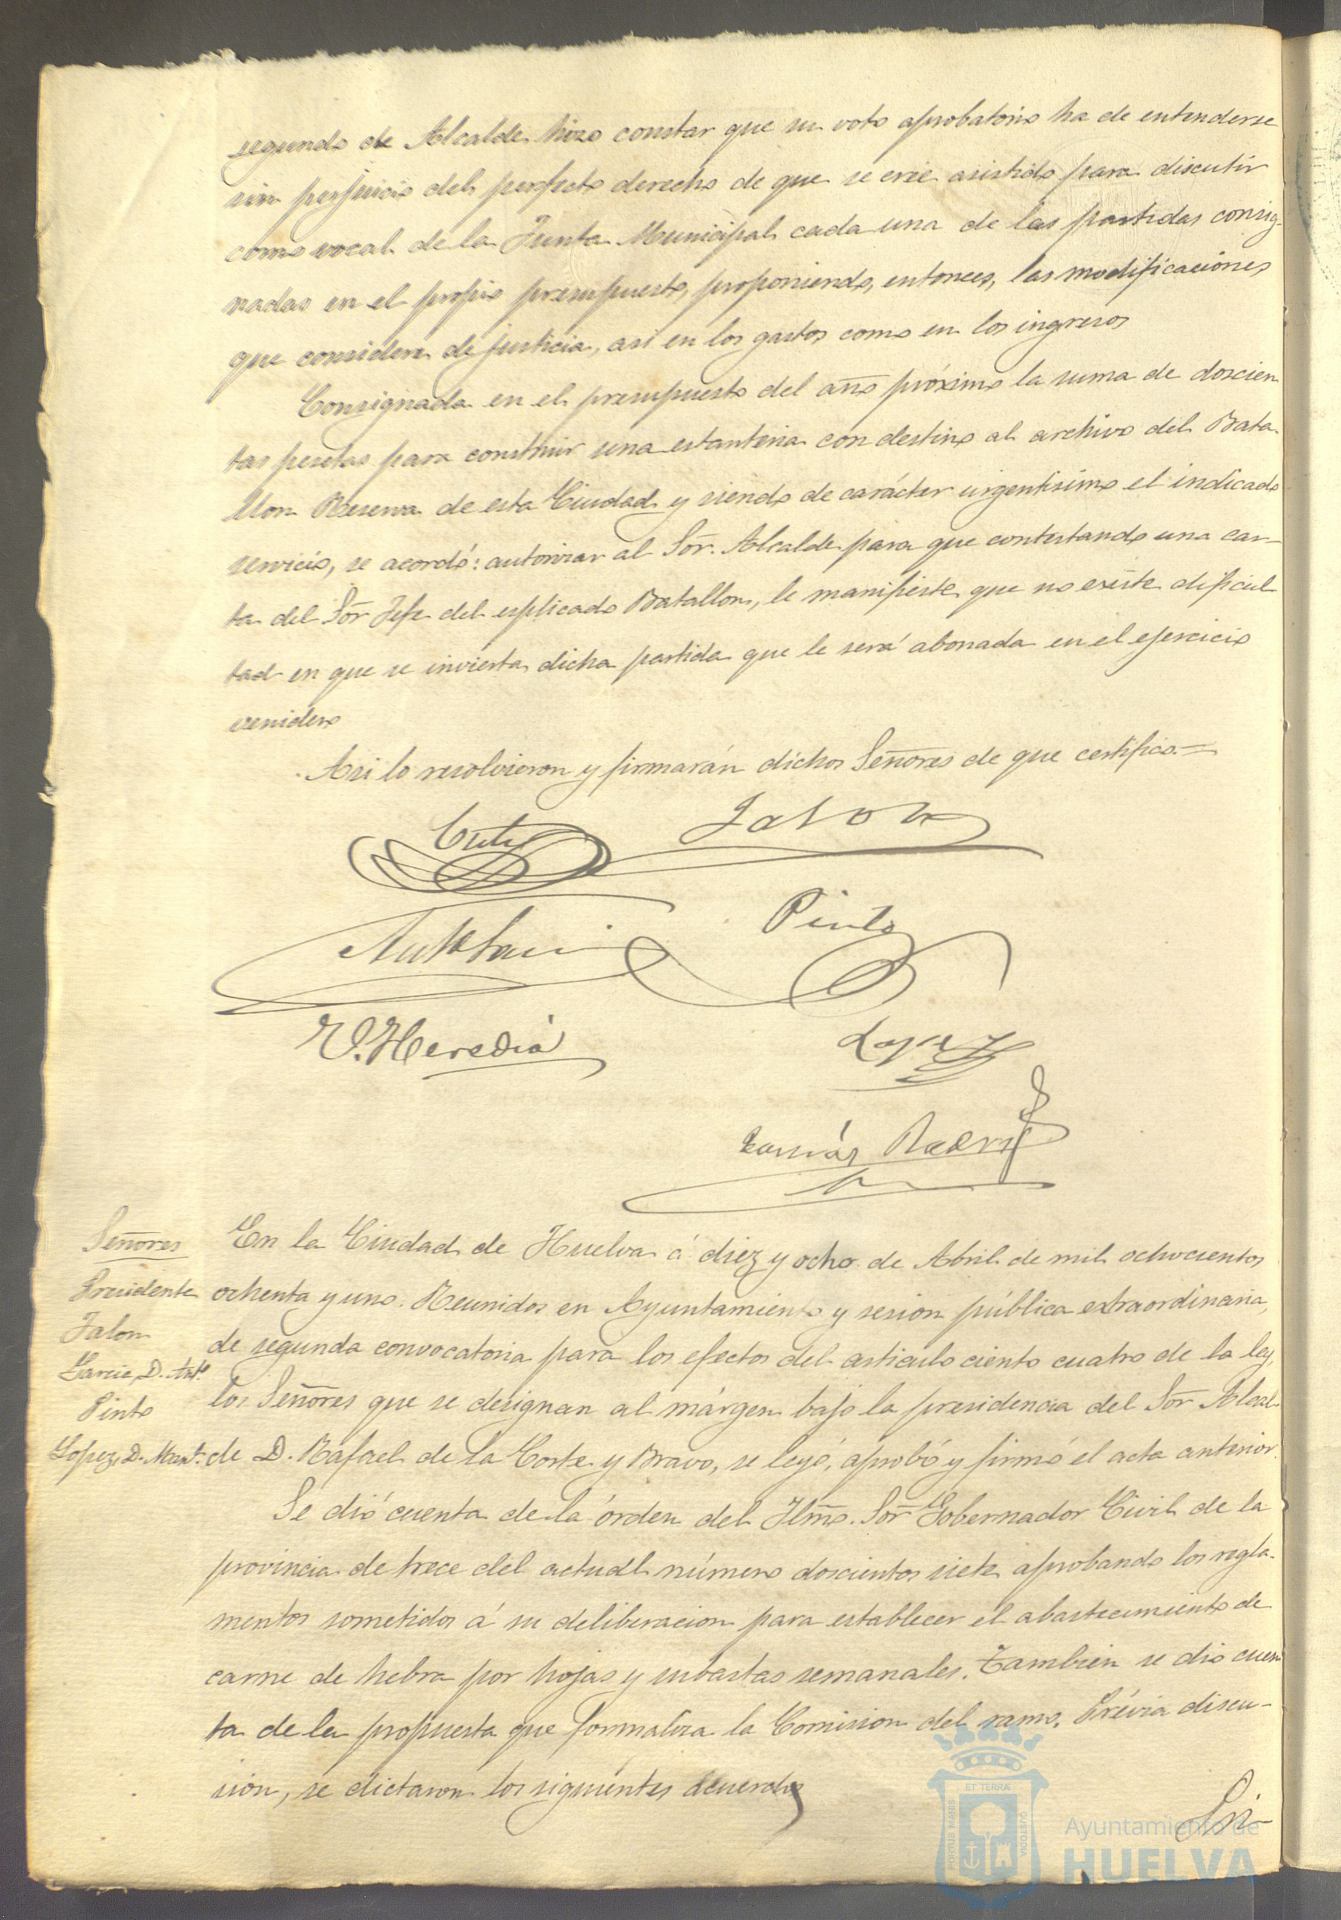 segundo de Alcalde hizo constar que su voto aprobatorio ha de entenderse
sin perjuicio del perfecto derecho de que se cree asistido para discutir
como vocal de la Junta Municipal cada una de las partidas consig-
nadas en el propio presupuesto, proponiendo, entonces, las modificaciones
que considere de justicia, asi en los gastos como en los ingresos
Consignada en el presupuesto del año próximo la suma de doscien
tas pesetas para construir una estanteria con destino al archivo del Bata-
llon Reserva de esta Ciudad y siendo de carácter urgentisimo el indicado
servicio, se acordó: autorizar al Sor. Alcalde para que contestando una car-
ta del Sor Jefe del esplicado Batallon, le manifieste que no existe dificul
tad en que se invierta dicha partida que le será abonada en el ejercicio
venidero
Asi lo resolvieron y firmarán dichos Señores de que certifico=
Corte
Jalon
Pinto
V. Heredia
Lopez
Tomás
Señores
Presidente
Jalon
Garcia, D. Anto
Pinto
Lopez, D. Manl.
En la Ciudad de Huelva á diez y ocho de Abril de mil ochocientos
ochenta y uno. Reunidos en Ayuntamiento y sesion pública extraordinaria,
de segunda convocatoria para los efectos del articulo ciento cuatro de la ley,
los Señores que se designan al márgen bajo la presidencia del Sor Alcal-
de D. Rafael de la Corte y Bravo, se leyó, aprobó y firmó el acta anterior.
Se dió cuenta de la órden del Ilmo. Sor Gobernador Civil de la
provincia de trece del actual número doscientos siete aprobando los regla-
mentos sometidos á su deliberacion para establecer el abastecimiento de
carne de hebra por hojas y subastas semanales. Tambien se dió cuen
ta de la propuesta que formaliza la Comision del ramo. Prévia discu-
sion, se dictaron los siguientes acuerdos
Pri-
ET TERRÆ
PORTUS MARIS
CUSTODIA
Ayuntamiento de
HUELVA